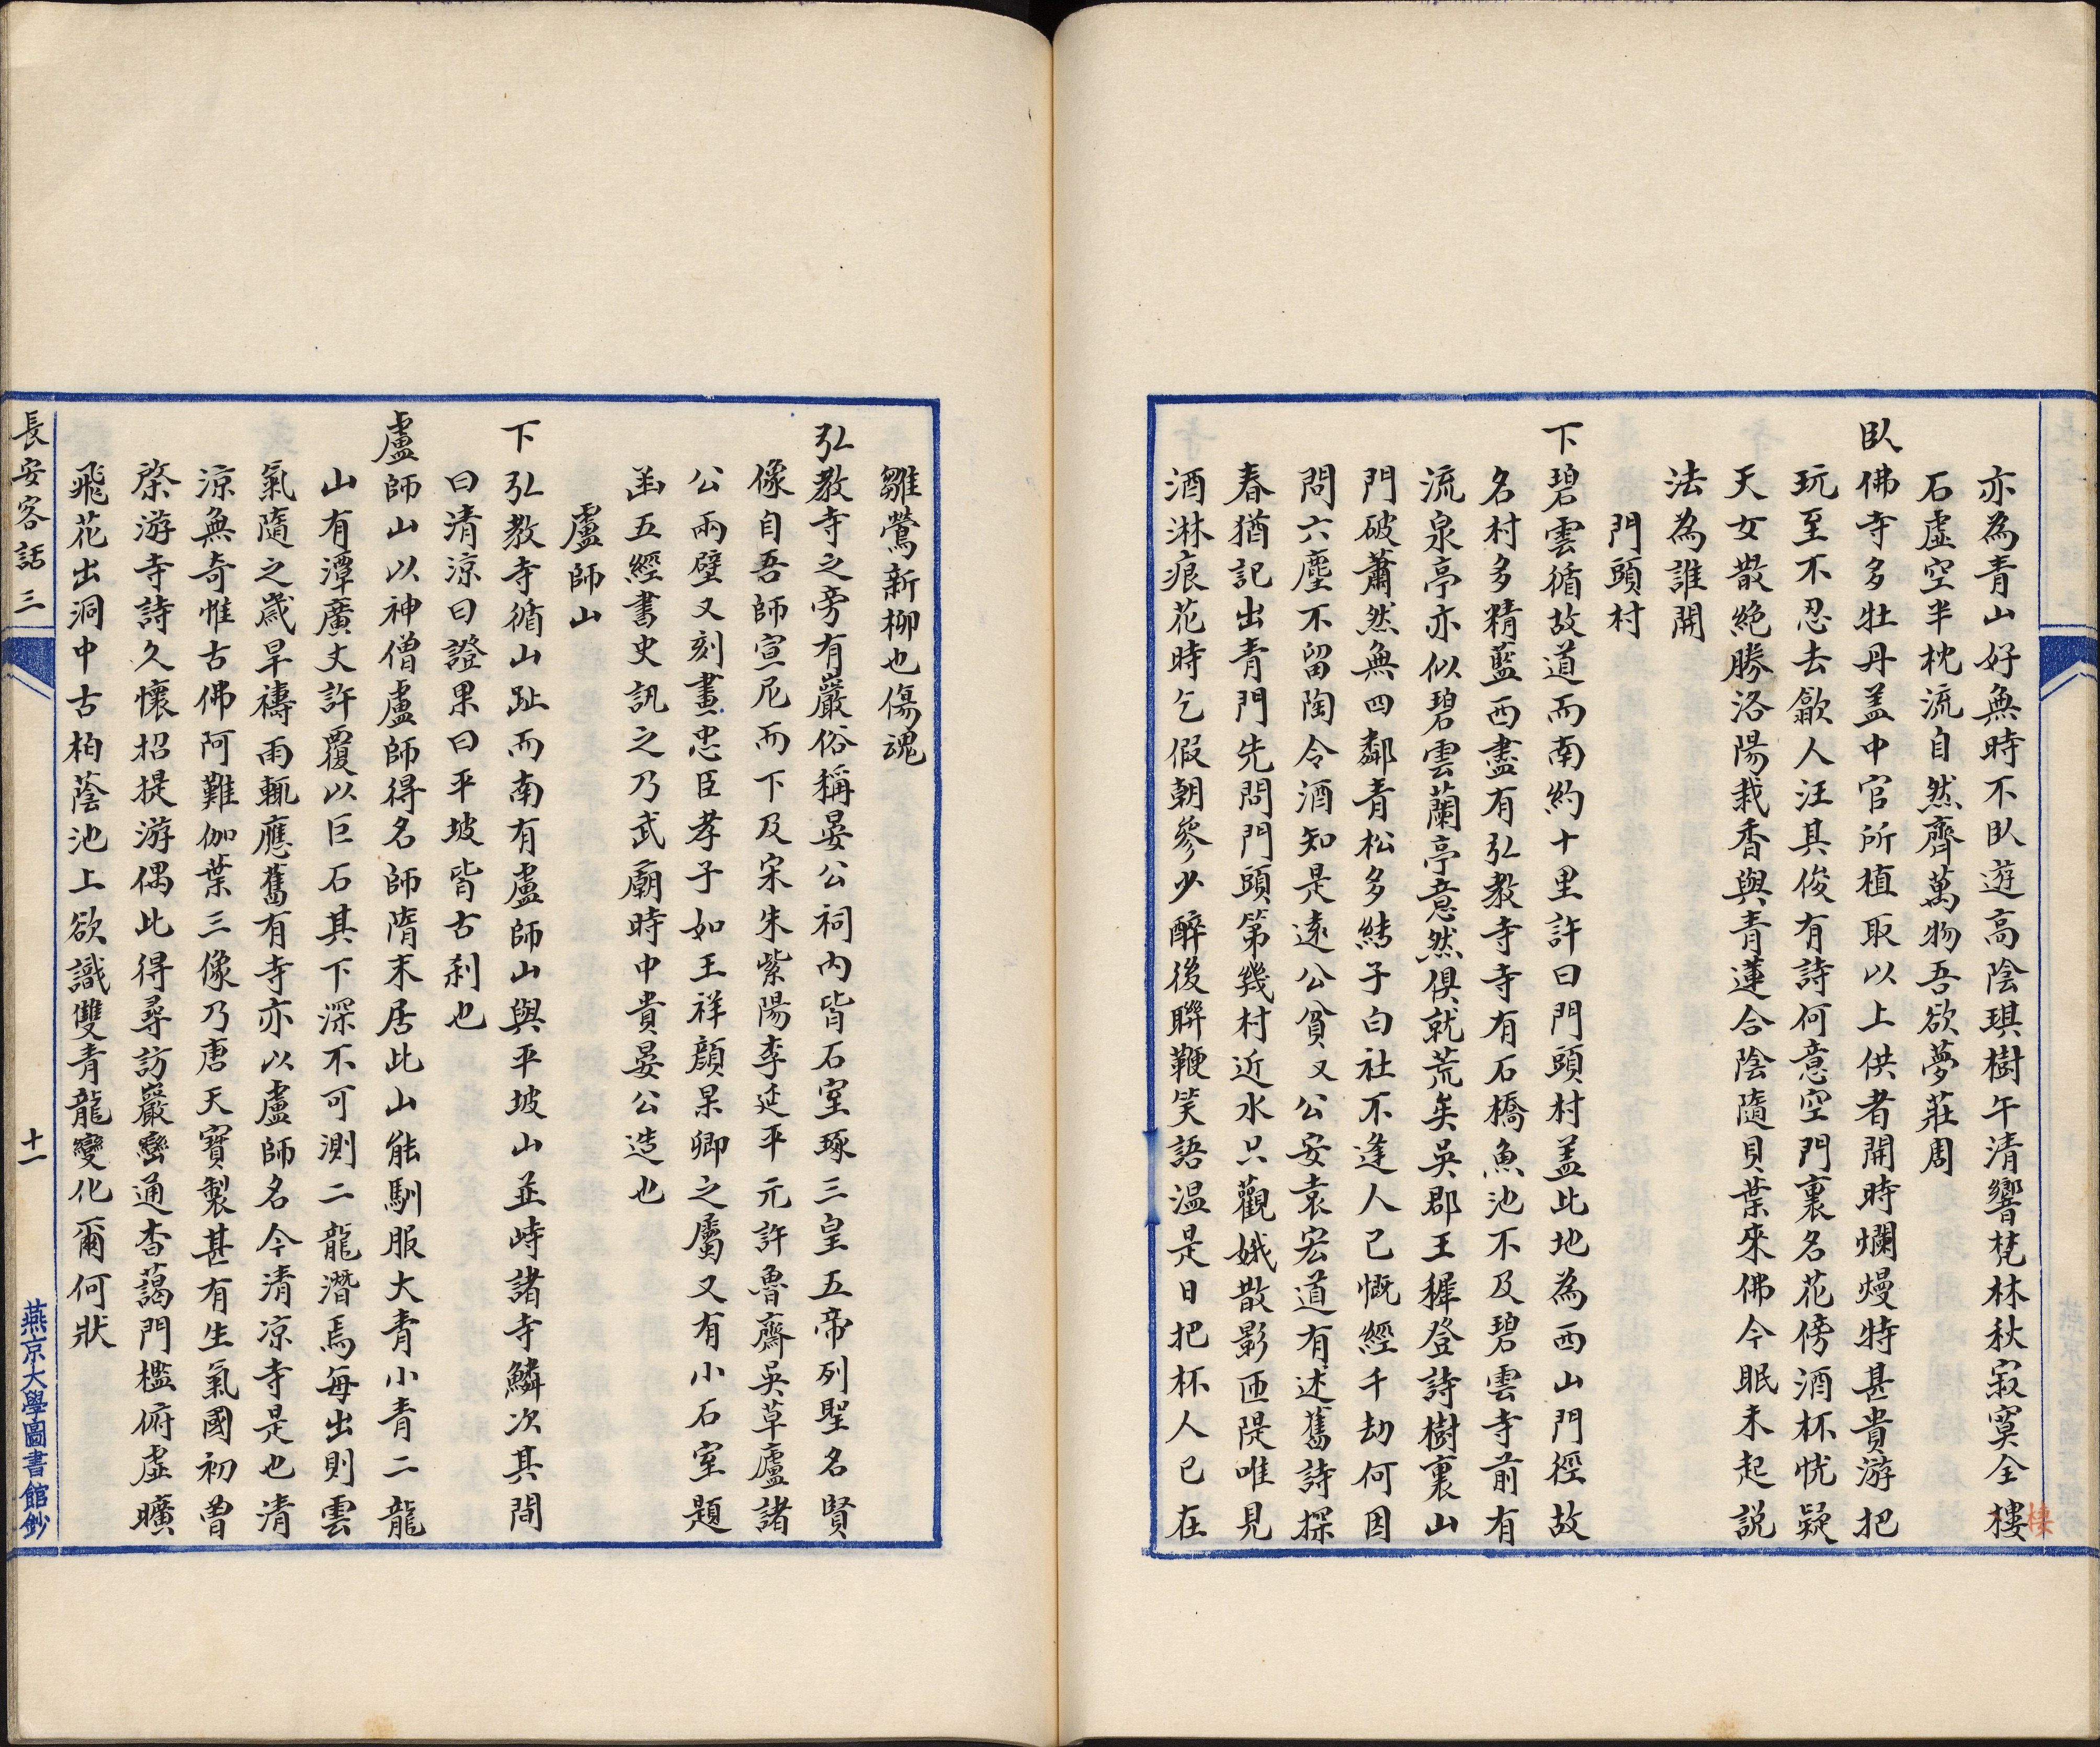 亦為青山好無時不臥遊高陰琪樹午清響梵林秋寂寞全樓
棲
石虛空半枕流自然齊萬物吾欲夢莊周
臥佛寺多牡丹盖中官所植取以上供者開時爛熳特甚貴游把
玩至不忍去歙人汪其俊有詩何意空門裏名花傍酒杯恍疑
天女散絶勝洛陽栽香與青蓮合陰隨貝葉來佛今眠未起説
法為誰開
門頭村
下碧雲循故道而南約十里許曰門頭村盖此地為西山門徑故
名村多精藍西盡有弘教寺寺有石橋魚池不及碧雲寺前有
流泉亭亦似碧雲蘭亭意然俱就荒矣吳郡王穉登詩樹裏山
門破蕭然無四鄰青松多結子白社不逢人已慨經千劫何因
問六塵不留陶令酒知是遠公貧又公安袁宏道有述舊詩探
春猶記出青門先問門頭第幾村近水只觀娥散影匝隄唯見
酒淋痕花時乞假朝參少醉後聯鞭笑語温是日把杯人已在
雛鶯新柳也傷魂
弘教寺之旁有巖俗稱晏公祠内皆石室琢三皇五帝列聖名賢
像自吾師宣尼而下及宋朱紫陽李延平元許魯齋吳草廬諸
公兩壁又刻畫忠臣孝子如王祥顔杲卿之屬又有小石室題
函五經書史訊之乃武廟時中貴晏公造也
盧師山
下弘教寺循山趾而南有盧師山與平坡山並峙諸寺鱗次其間
曰清涼曰證果曰平坡皆古刹也
盧師山以神僧盧師得名師隋末居此山能馴服大青小青二龍
山有潭廣丈許覆以巨石其下深不可測二龍潛焉每出則雲
氣隨之歲旱禱雨輒應舊有寺亦以盧師名今清凉寺是也清
涼無奇惟古佛阿難伽葉三像乃唐天寶製甚有生氣國初曾
棨游寺詩久懷招提游偶此得尋訪巖巒通杳藹門檻俯虛曠
飛花出洞中古柏蔭池上欲識雙青龍變化爾何狀
長安客話 三
十一
燕京大學圖書館鈔